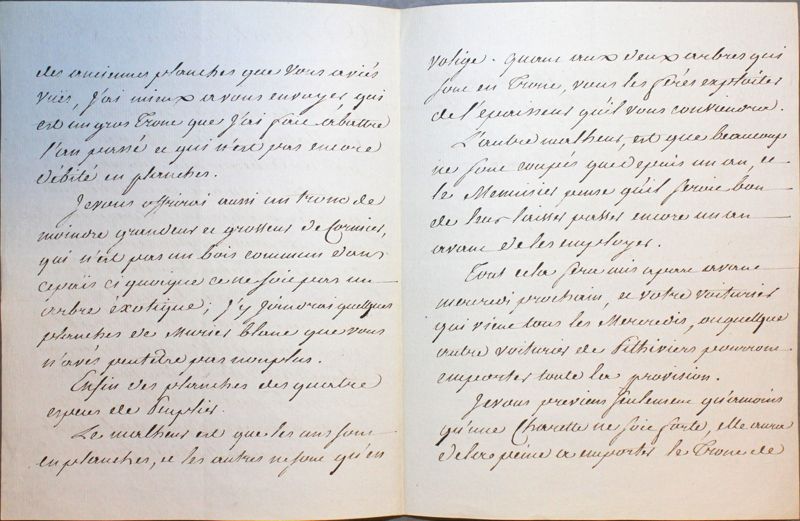 des anciennes planches que vous aviés
vües, j'ai mieux a vous envoyer, qui
est un gros Tronc que j'ai fait abattre
l'an passé et qui n'est pas encore
débité en planches.
Je vous offrirai aussi un tronc de
moindre grandeur et grosseur de Cormier,
qui n'est pas un bois commun dans
ce païs ci quoique ce ne soit pas un
arbre éxotique; j'y joindrai quelques
planches de Murier blanc que vous
n'avés peutêtre pas non plus.
Enfin des planches des quatre
especes de Peuplier.
Le malheur est que les uns sont
en planches, et les autres ne sont qu'en
volige. Quant aux deux arbres qui
sont en Tronc, vous les ferés exploiter
de l'epaisseur qu'il vous conviendra.
L'autre malheur, est que beaucoup
ne sont coupés que depuis un an, et
le Menuisier pense qu'il seroit bon
de leur laisser passer encore un an
avant de les employer.
Tout cela sera mis a part avant
mercredi prochain, et votre voiturier
qui vient tous les Mercredis, ou quelque
autre voiturier de Pithiviers pourront
emporter toute la provision.
Je vous previens seulement qu'amoins
qu'une Charette ne soit forte, elle aura
de la peine a emporter le Tronc de